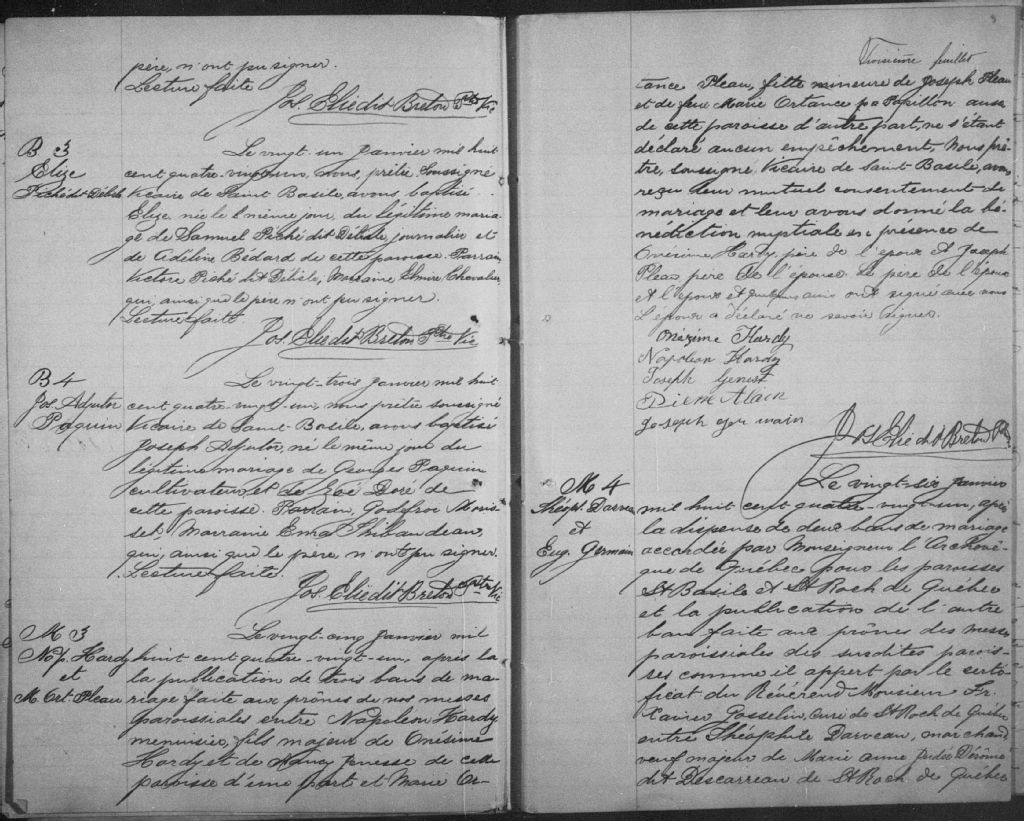 père, n'ont pu signer.
Lecture faite
Jos. Elie dit Breton Ptre Vic
B 3
Elize
Piché dit Délisle
Le vingt-un janvier mil huit
cent quatre-vingt-un, nous, prêtre soussigné
Vicaire de Saint Basile, avons baptisé
Elize née le même jour, du légitime maria-
ge de Samuel Piché dit Délisle, journalier et
de Adéline Bédard de cette paroisse. Parrain,
Victore Piché dit Délisle, Marraine Elmire Chevalier
qui, ainsi que le père n'ont pu signer.
Lecture faite.
Jos. Elie dit Breton Ptre Vic
B 4
Jos. Adjutor
Paquin
Le vingt-trois janvier mil huit
cent quatre-vingt-un, nous prêtre soussigné
Vicaire de Saint-Basile, avons baptisé
Joseph Adjutor, né le même jour du
légitime mariage de Georges Paquin
cultivateur et de Zoé Doré de
cette paroisse. Parrain, Godefroi Moris-
set. Marraine Ema Thibaudeau,
qui, ainsi que le père, n'ont pu signer.
Lecture faite.
Jos. Elie dit Breton Ptre Vic
M 3
Nap. Hardy
et
M. Ort. Pleau
Le vingt-cinq janvier mil
huit cent quatre-vingt-un, après la
la publication de trois bans de ma-
riage faite aux prônes de nos messes
paroissiales entre Napoléon Hardy
menuisier, fils majeur de Onésime
Hardy et de Nancy Jenesse de cette
paroisse d'une part et Marie Or-
Troisième feuillet
tance Pleau, fille mineure de Joseph Pleau
et de feue Marie Ortance Papillon aussi
de cette paroisse d'autre part, ne s'étant
déclaré aucun empêchement, Nous prê-
tre, soussigné, Vicaire de Saint Basile, avons
reçu leur mutuel consentement de
mariage et leur avons donné la bé-
nédiction nuptiale en présence de
Onésime Hardy, père de l'époux et Joseph
Pleau père de l'épouse. Le père de l'époux
et l'époux et quelques amis ont signé avec nous
L'épouse a déclaré ne savoir signer.
Onézime Hardy
Napoléon Hardy
Joseph Genest
Pierre Alain
Joseph
Jos Elie dit Breton Ptre
M 4
Théop. Darveau
et
Eug. Germain
Le vingt-six janvier
mil huit cent quatre-vingt-un, après
la dispense de deux bans de mariage
accordée par Monseigneur l'Archevê-
que de Québec pour les paroisses
St Basile et St Roch de Québec
et la publication de l'autre
ban faite aux prônes des messes
paroissiales des susdites parois-
ses comme il appert par le certi-
ficat du Révérend Monsieur Fr.
Xavier Gosselin, curé de St Roch de Québec
entre Théophile Darveau, marchand
veuf majeur de Marie anne Jordes Dérôme
dit Descarreau de St Roch de Québec